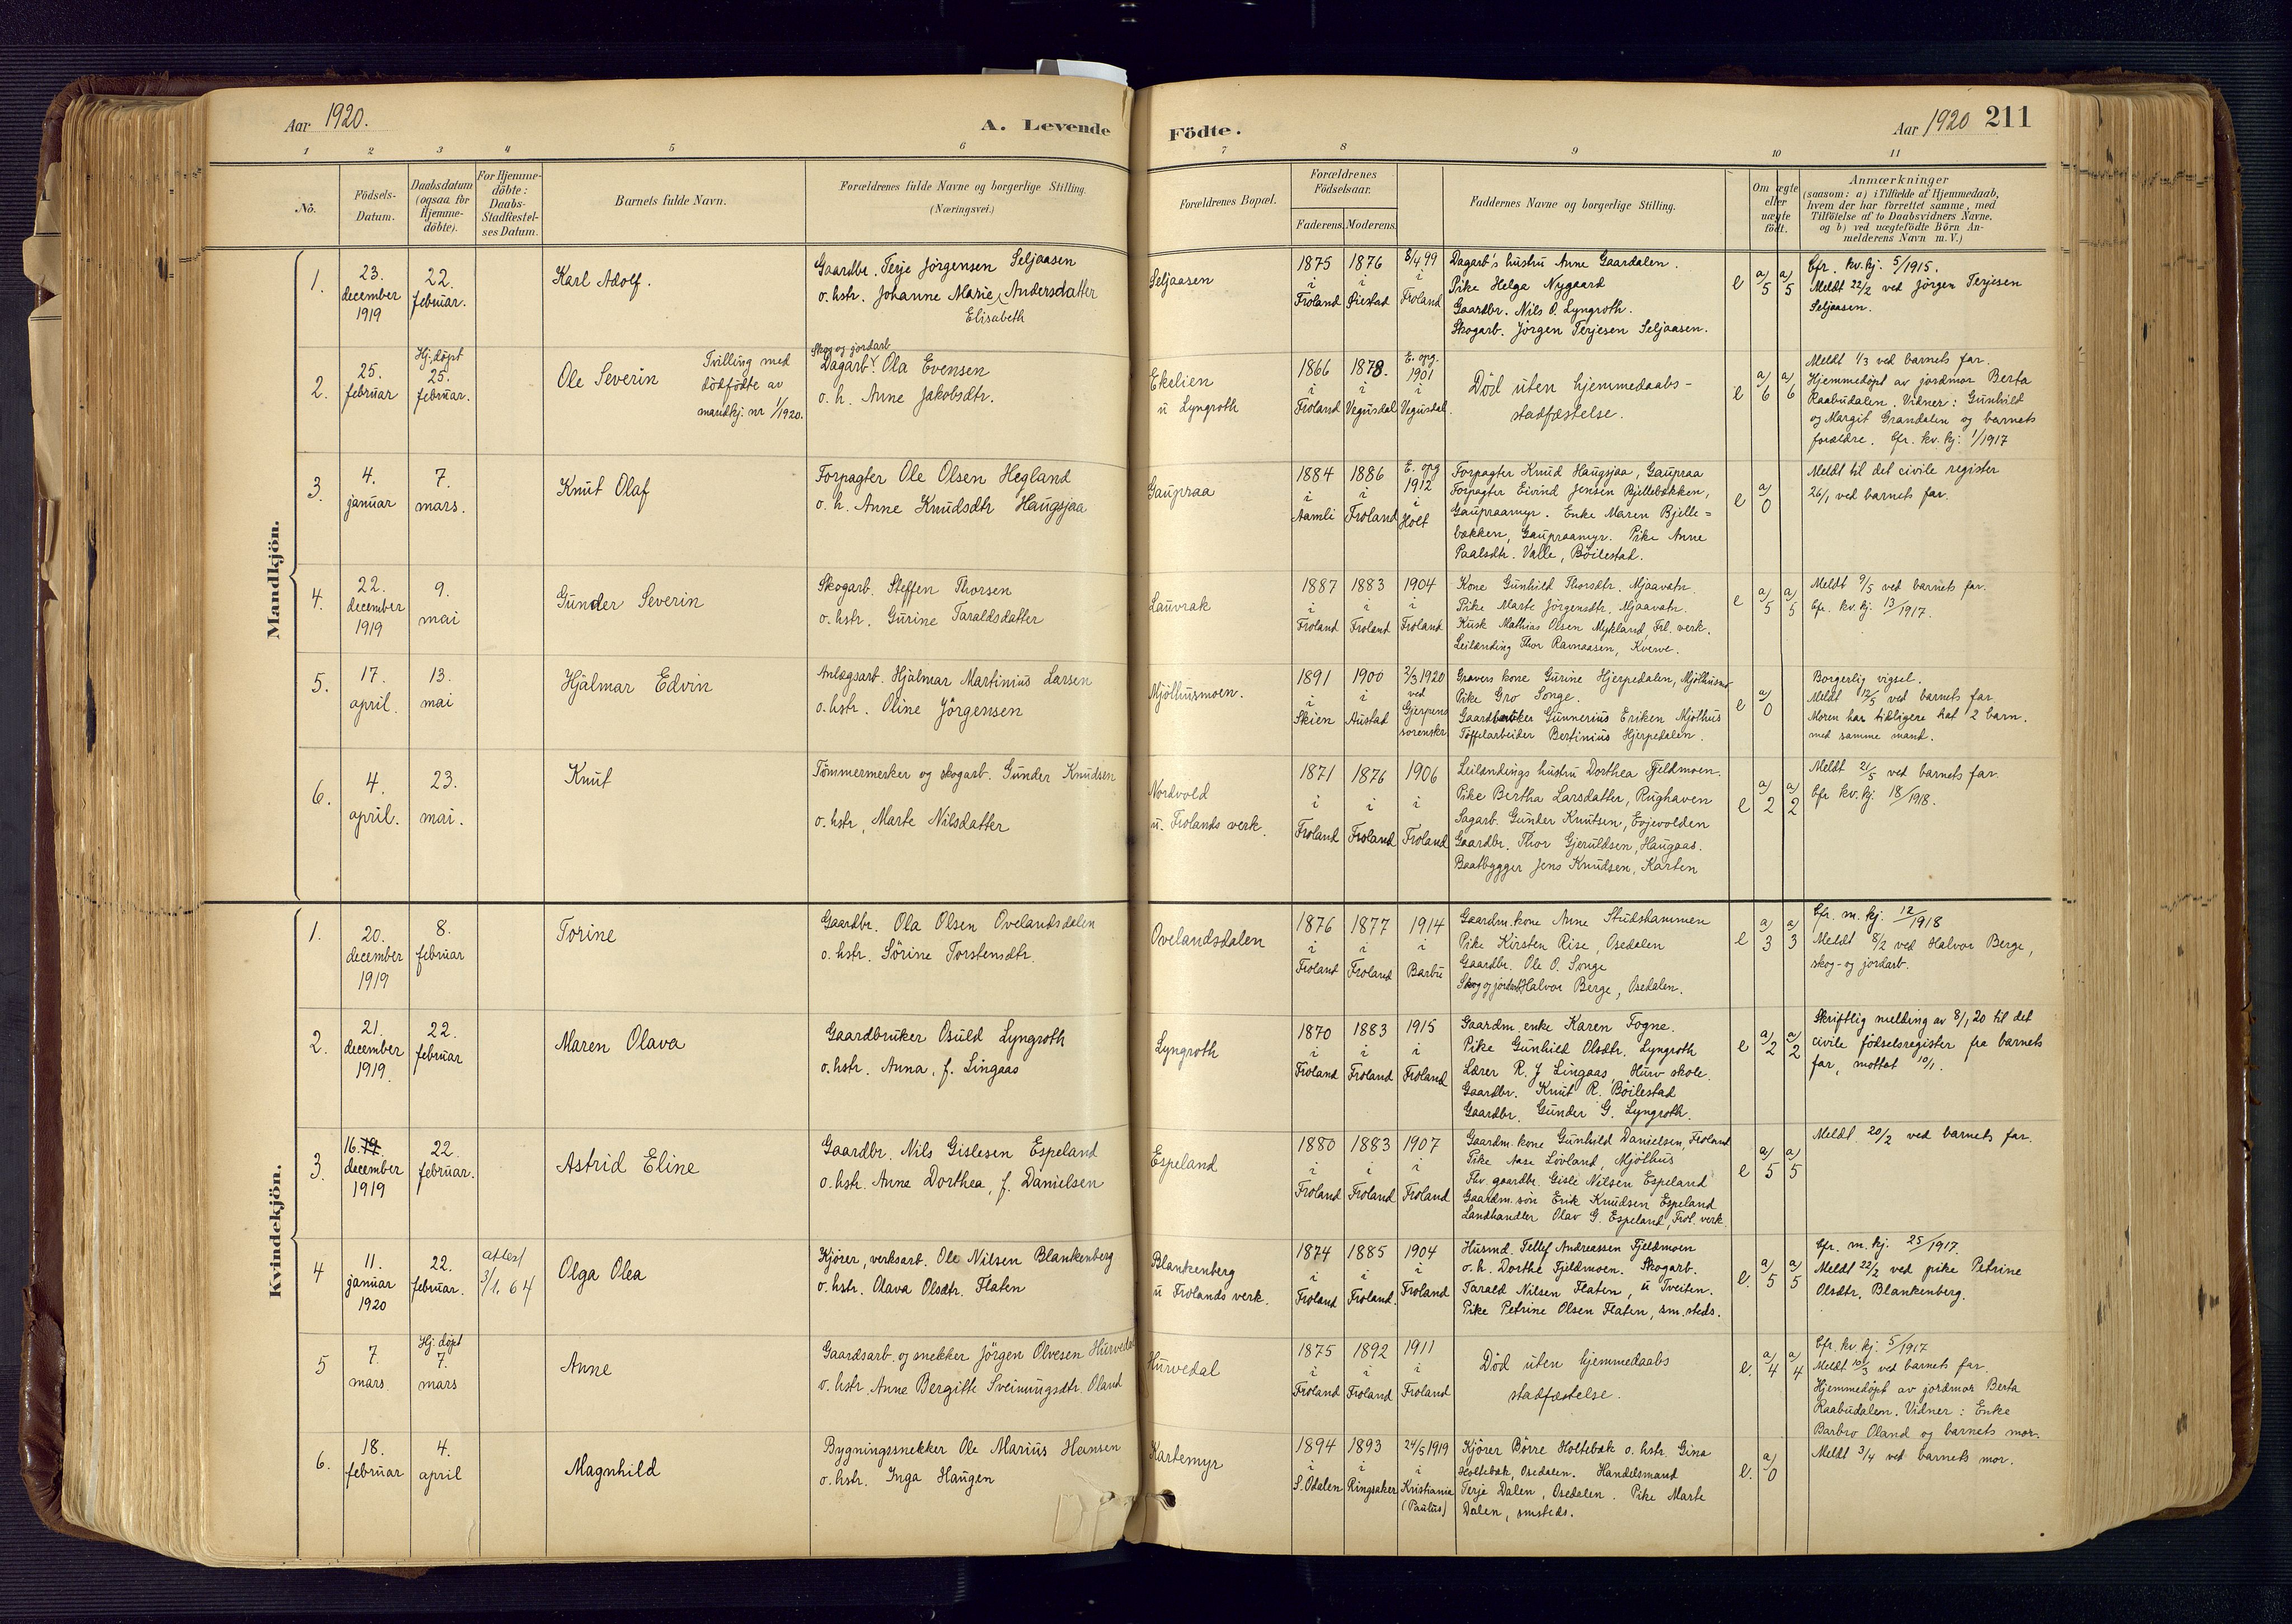 Aar 1920.
A. Levende
Födte.
Aar 1920 211
1 2 3 4 5 6 7 8 9 10 11
No.
Födsels-
Datum.
Daabsdatum
(ogsaa for
Hjemme-
döbte).
For Hjemme-
döbte:
Daabs-
Stadfæstel-
ses Datum.
Barnets fulde Navn.
Forældrenes fulde Navne og borgerlige Stilling.
(Næringsvei.)
Forældrenes Bopæl.
Forældrenes
Födselsaar.
Faderens. Moderens.
Faddernes Navne og borgerlige Stilling.
Om ægte
eller
uægte
født.
Anmærkninger
(saasom: a) i Tilfælde af Hjemmedaab,
hvem der har forrettet samme, med
Tilföielse af to Daabsvidners Navne,
og b) ved uægtefödte Börn An-
melderens Navn m. V.)
Mandkjön.
1.
23.
december
1919
22.
februar.
Karl Adolf.
Gaardbr. Terje Jörgensen Seljaasen
o. hstr. Johanne Marie Andersdatter
Elisabeth
Seljaasen
1875
i
Froland
1876
i
Øiestad
8/4 99
i
Froland
Dagarb's hustru Anne Gaardalen.
Pike Helga Nygaard
Gaardbr. Nils O. Lyngroth.
Skogarb. Jörgen Terjesen Seljaasen.
e a/5 a/5
Cfr. kv. kj. 5/1915.
Meldt 22/2 ved Jörgen Terjesen
Seljaasen.
2.
25.
februar
Hj. döpt
25.
februar.
Ole Severin
Tvilling med
dödfödte av
mandkj. nr 1/1920.
Skog og jordarb
Dagarb. Ola Evensen
o. h. Anne Jakobsdtr.
Ekelien
u Lyngroth
1866
i
Froland
1878.
i
Vegusdal
E. opg.
1901
i
Vegusdal.
Död uten hjemmedaabs-
stadfæstelse.
e a/6 a/6
Meldt 1/3 ved barnets far.
Hjemmedöpt av jordmor Berta
Raabudalen. Vidner: Gunhild
og Margit Grandalen og barnets
forældre. Cfr. kv. kj. 1/1917
3.
4.
januar
7.
mars.
Knut Olaf
Forpagter Ole Olsen Hegland
o. h. Anne Knudsdtr Haugsjaa
Gaupraa
1884
i
Aamli
1886
i
Froland
E. opg
1912
i
Holt
Forpagter Knud Haugsjaa, Gaupraa
Forpagter Eivind Jensen Bjellebækken,
Gaupraamyr. Enke Maren Bjelle=
bækken, Gaupraamyr. Pike Anne
Paalsdtr. Valle, Böilestad.
e a/0
Meldt til det civile register
26/1 ved barnets far.
4.
22.
december
1919
9.
mai
Gunder Severin
Skogarb. Steffen Thorsen
o. hstr. Gurine Taraldsdatter
Lauvrak
1887
i
Froland
1883
i
Froland
1904
i
Froland
Kone Gunhild Thorsdtr. Mjaavatn.
Pike Marte Jörgensdtr. Mjaavatn.
Kusk Mathias Olsen Mykland, Frl. verk.
Leilænding Thor Ravnaasen, Kverve.
e a/5 a/5
Meldt 9/5 ved barnets far.
Cfr. kv. kj. 13/1917.
5.
17.
april.
13.
mai
Hjalmar Edvin
Anlægsarb. Hjalmar Martinius Larsen
o. hstr. Oline Jörgensen
Mjölhusmoen.
1891
i
Skien
1900
i
Austad
2/3 1920
ved
Gjerpens
sorenskr
Gravers kone Gurine Hjerpedalen, Mjölhusmo
Pike Gro Songe.
Gaardbruker Gunnerius Eriken Mjölhus
Töffelarbeider Bertinius Hjerpedalen.
e a/0
Borgerlig vigsel.
Meldt 12/5 ved barnets far.
Moren har tidligere hat 2 barn.
med samme mand.
6.
4.
april.
23.
mai.
Knut
Tömmermerker og skogarb. Gunder Knudsen
o. hstr, Marte Nilsdatter
Nordvold
u. Frolands verk.
1871
i
Froland
1876
i
Froland
1906
i
Froland
Leilændings hustru Dorthea Fjeldmoen.
Pike Bertha Larsdatter, Rughaven
Sagarb. Gunder Knutsen, Evjevolden
Gaardbr. Thor Gjeruldsen, Haugaas.
Baatbygger Jens Knudsen, Karten
e a/2 a/2
Meldt 21/5 ved barnets far.
Cfr kv. kj. 18/1918.
Kvindekjön.
1.
20.
december
1919
8.
februar
Torine
Gaardbr. Ola Olsen Ovelandsdalen
o. hstr. Sörine Torstensdtr.
Ovelandsdalen
1876
i
Froland
1877
i
Froland
1914
i
Barbu
Gaardm. kone Anne Stidshammen
Pike Kirsten Rise, Osedalen
Gaardbr. Ole O. Songe
Skog og jordarb. Halvor Berge, Osedalen.
e a/3 a/3
Cfr. m. kj. 12/1918
Meldt 8/2 ved Halvor Berge,
skog- og jordarb.
2.
21.
december
1919.
22.
februar
Maren Olava
Gaardbruker Osuld Lyngroth
o. hstr. Anna, f. Lingaas
Lyngroth
1870
i
Froland
1883
i
Froland
1915
i
Froland
Gaardm. enke Karen Fogne.
Pike Gunhild Olsdtr. Lyngroth
Lærer R. J Lingaas, Hurv skole.
Gaardbr. Knut R. Böilestad
Gaardbr. Gunder G. Lyngroth.
e a/2 a/2
Skriftlig melding av 8/1 20 til det
civile födselsregister fra barnets
far, mottat 10/1.
3.
16. 19.
december
1919
22.
februar.
Astrid Eline
Gaardbr. Nils Gislesen Espeland
o. hstr. Anne Dorthea, f. Danielsen
Espeland
1880
i
Froland
1883
i
Froland
1907
i
Froland
Gaardm. kone Gunhild Danielsen, Froland
Pike Aase Lövland, Mjölhus
Fhv. gaardbr. Gisle Nilsen Espeland
Gaardm. sön Erik Knudsen Espeland
Landhandler Olav G. Espeland, Frol. verk.
e a/5 a/5
Meldt 20/2 ved barnets far.
4
11.
januar
1920
22.
februar.
attest
3/1. 64
Olga Olea
Kjörer, verksarb. Ole Nilsen Blankenberg
o. hstr. Olava Olsdtr. Flaten
Blankenberg
u Frolands verk.
1874
i
Froland
1885
i
Froland.
1904
i
Froland
Husmd. Tellef Andreassen Fjeldmoen
o. h. Dorthe Fjeldmoen. Skogarb.
Tarald Nilsen Flaten, u Tveiten.
Pike Petrine Olsen Flaten, sm. steds.
e. a/5 a/5
Cfr. m. kj. 25/1917.
Meldt 22/2 ved pike Petrine
Olsdtr. Blankenberg.
5
7.
mars.
Hj. döpt
7.
mars
Anne
Gaardsarb. og snekker Jörgen Olvesen Hurvedal
o. hstr. Anne Bergitte Sveinungsdtr. Oland
Hurvedal
1875
i
Froland
1892
i
Froland
1911
i
Froland
Död uten hjemmedaabs
stadfæstelse.
e. a/4 a/4
Cfr. kv. kj. 5/1917
Meldt 10/3 ved barnets far.
Hjemmedöpt av jordmor Berta
Raabudalen. Vidner: Enke
Barbro Oland og barnets mor.
6.
18.
februar
4.
april
Magnhild
Bygningssnekker Ole Marius Hansen
o. hstr. Inga Haugen
Kartemyr
1894
i
S. Odalen
1893
i
Ringsaker
24/5 1919
i
Kristiania
(Paulus)
Kjörer Börre Holtebæk o. hstr. Gina
Holtebæk, Osedalen. Handelsmand
Terje Dalen, Osedalen. Pike Marte
Dalen, smsteds.
e. a/0
Meldt 3/4 ved barnets mor.